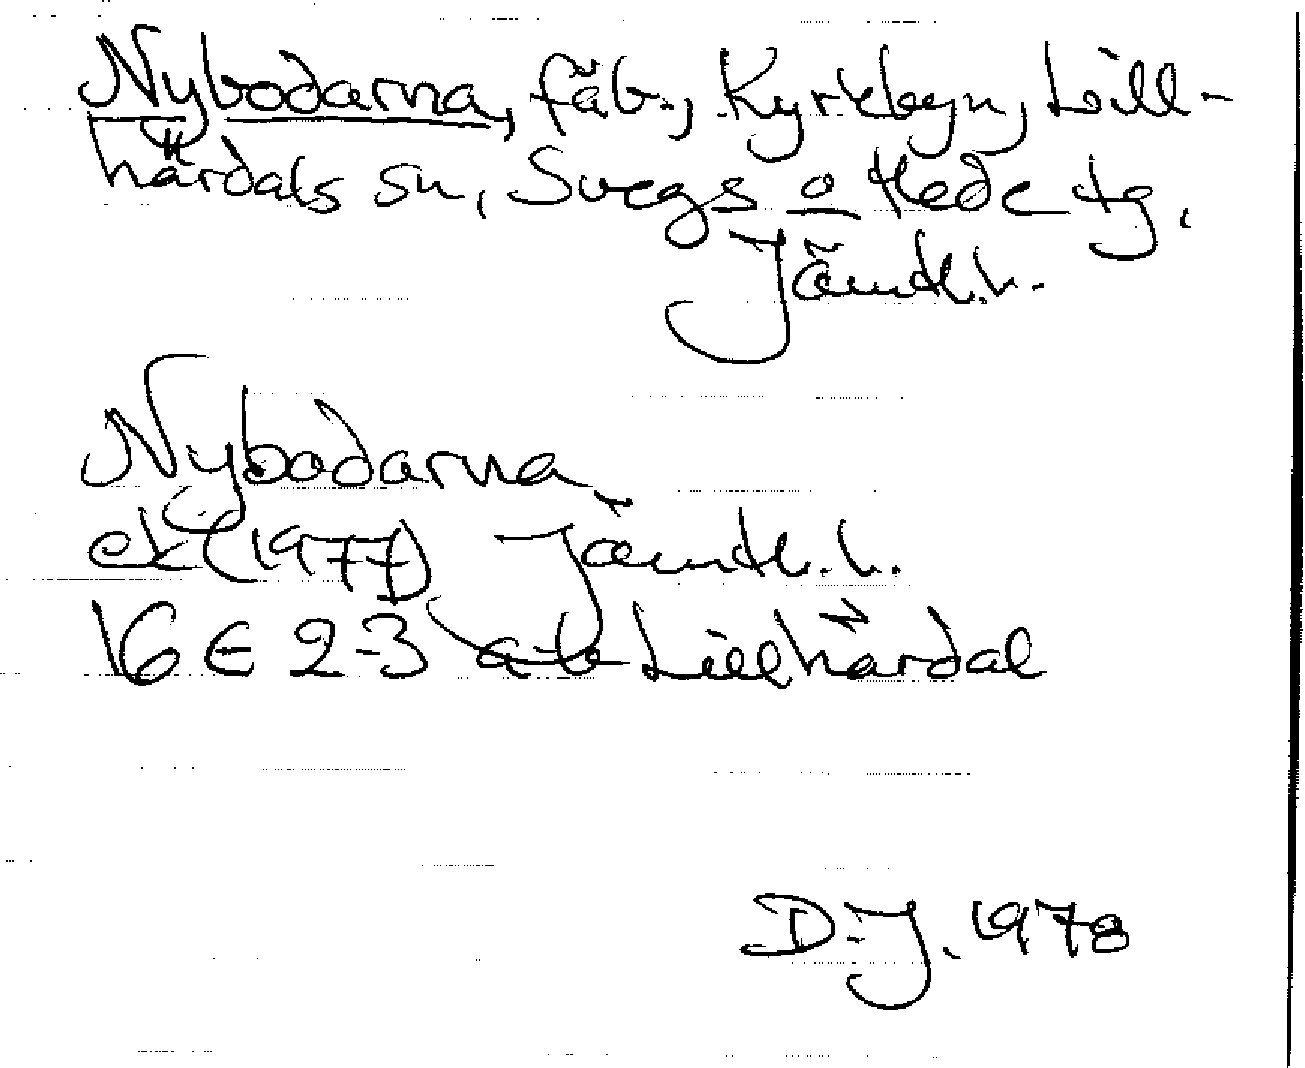 Nybodarna, fäb., Kyrkbyn, Lill-
härdals sn, Svegs o Hede tg,
Jämtl.l.
Nybodarna
ek (1977) Jämtl.l.
16 E 2-3 a-b Lillhärdal
D.J. 1978